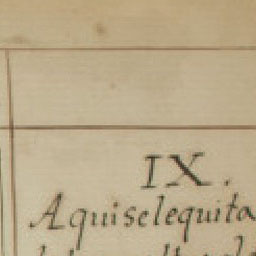 IX.
Aquiselequita